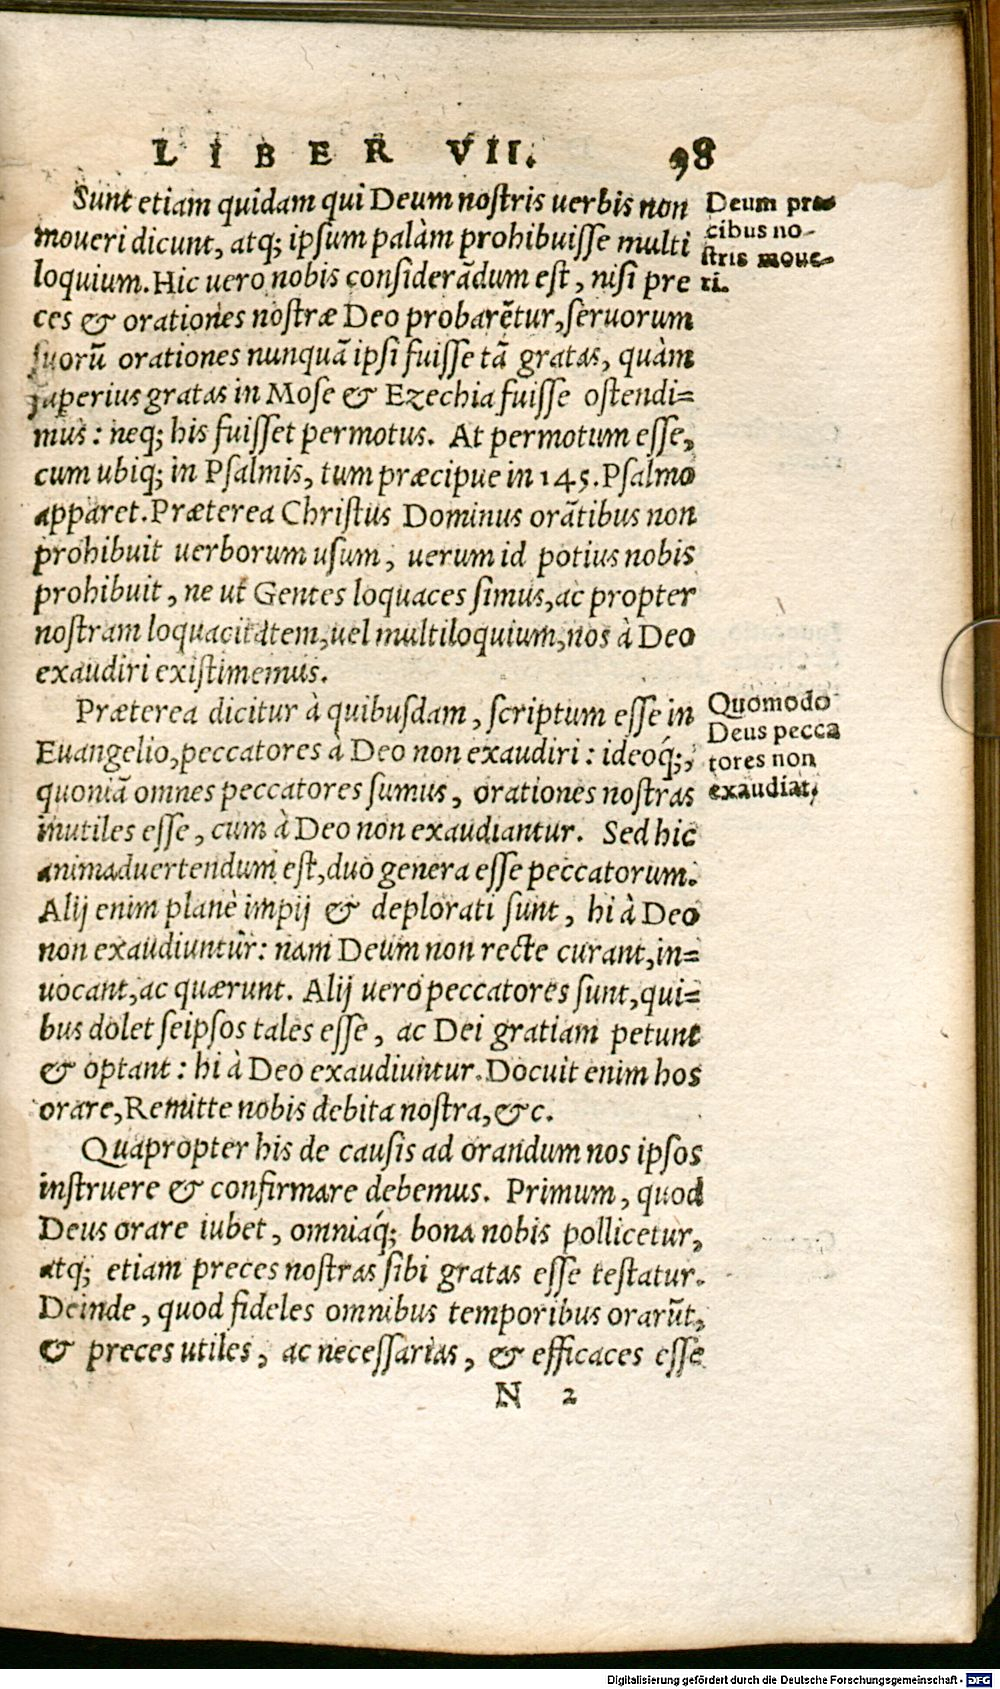 LIBER VII. 98
Sunt etiam quidam qui Deum nostris uerbis non
moueri dicunt, atq; ipsum palàm prohibuisse multi
loquium. Hic uero nobis considerãdum est, nisi pre
ces & orationes nostræ Deo probarẽtur, seruorum
suorũ orationes nunquã ipsi fuisse tã gratas, quàm
superius gratas in Mose & Ezechia fuisse ostendi=
mus: neq; his fuisset permotus. At permotum esse,
cum ubiq; in Psalmis, tum præcipue in 145. Psalmo
apparet. Præterea Christus Dominus orãtibus non
prohibuit uerborum usum, uerum id potius nobis
prohibuit, ne ut Gentes loquaces simus, ac propter
nostram loquacitatem, uel multiloquium, nos à Deo
exaudiri existimemus.
Deum pre
cibus no-
stris moue-
ri.
Præterea dicitur à quibusdam, scriptum esse in
Euangelio, peccatores à Deo non exaudiri: ideoq́;,
quoniã omnes peccatores sumus, orationes nostras
inutiles esse, cum à Deo non exaudiantur. Sed hic
animaduertendum est, duo genera esse peccatorum.
Alij enim planè impij & deplorati sunt, hi à Deo
non exaudiuntur: nam Deum non recte curant, in=
uocant, ac quærunt. Alij uero peccatores sunt, qui=
bus dolet seipsos tales esse, ac Dei gratiam petunt
& optant: hi à Deo exaudiuntur. Docuit enim hos
orare, Remitte nobis debita nostra, &c.
Quomodo
Deus pecca
tores non
exaudiat,
Quapropter his de causis ad orandum nos ipsos
instruere & confirmare debemus. Primum, quod
Deus orare iubet, omniaq́; bona nobis pollicetur,
atq; etiam preces nostras sibi gratas esse testatur.
Deinde, quod fideles omnibus temporibus orarũt,
& preces utiles, ac necessarias, & efficaces esse
N 2
Digitalisierung gefördert durch die Deutsche Forschungsgemeinschaft - DFG